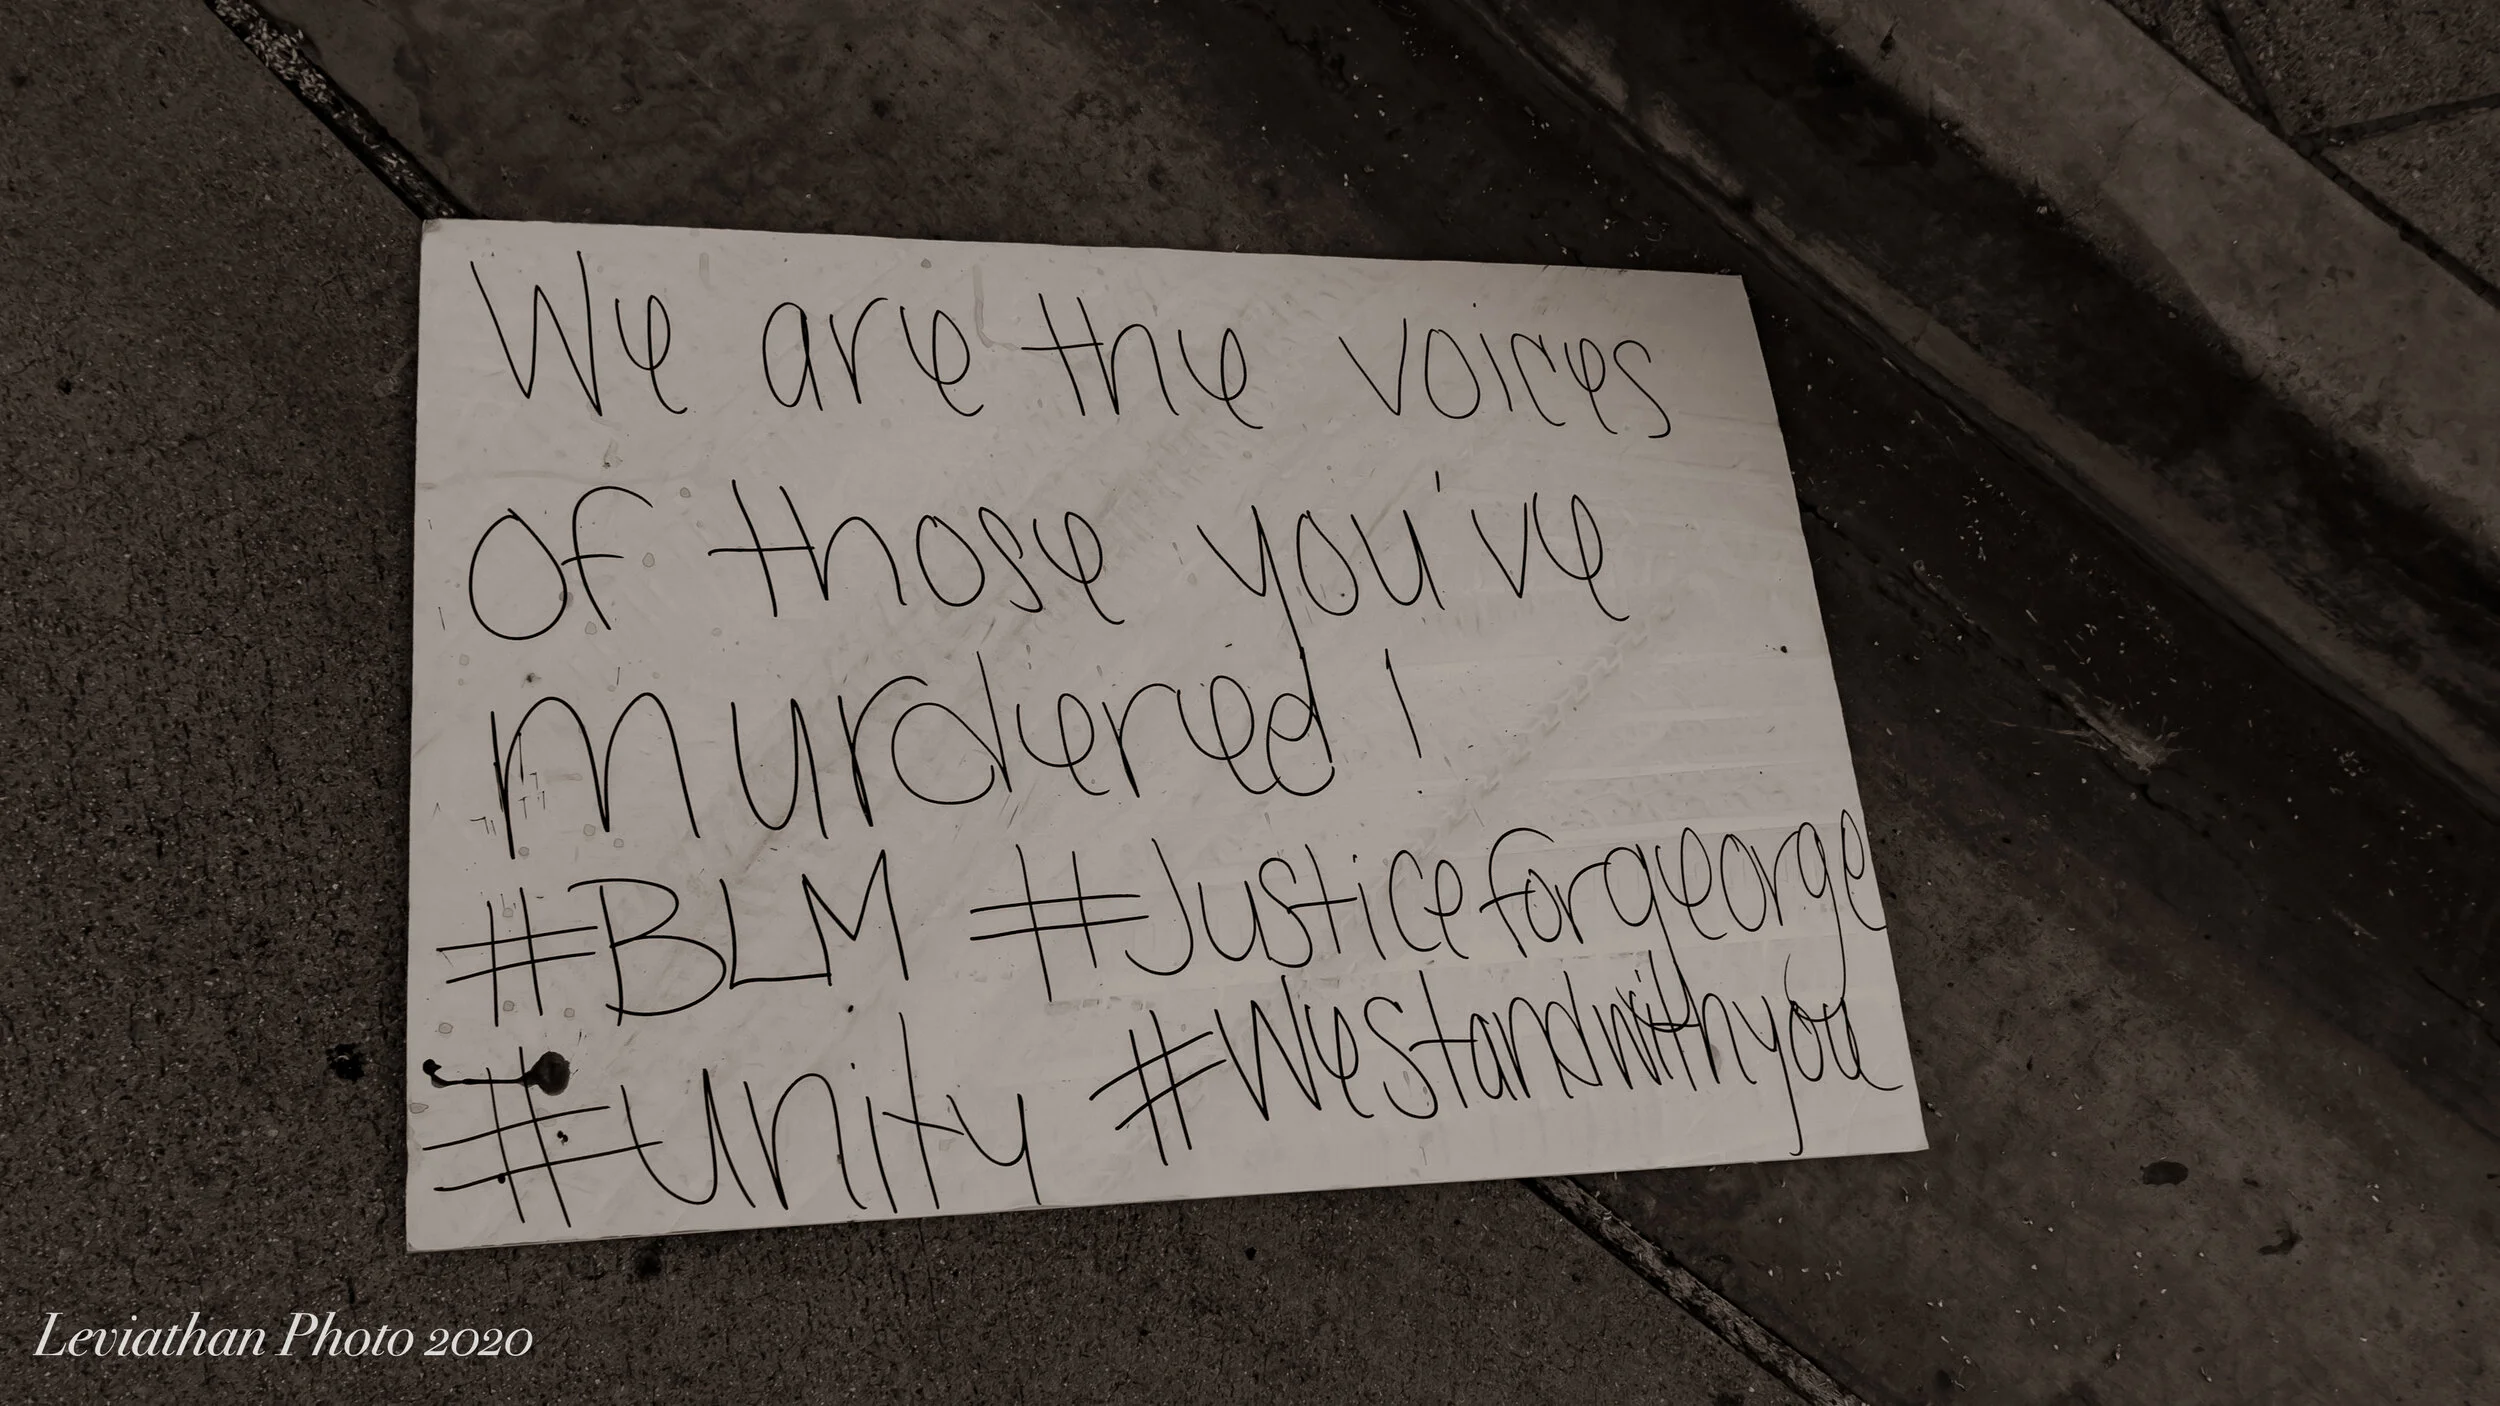 We are the voices
of those you've
murdered!
#BLM #Justiceforgeorge
#Unity #Westandwithyou
Leviathan Photo 2020